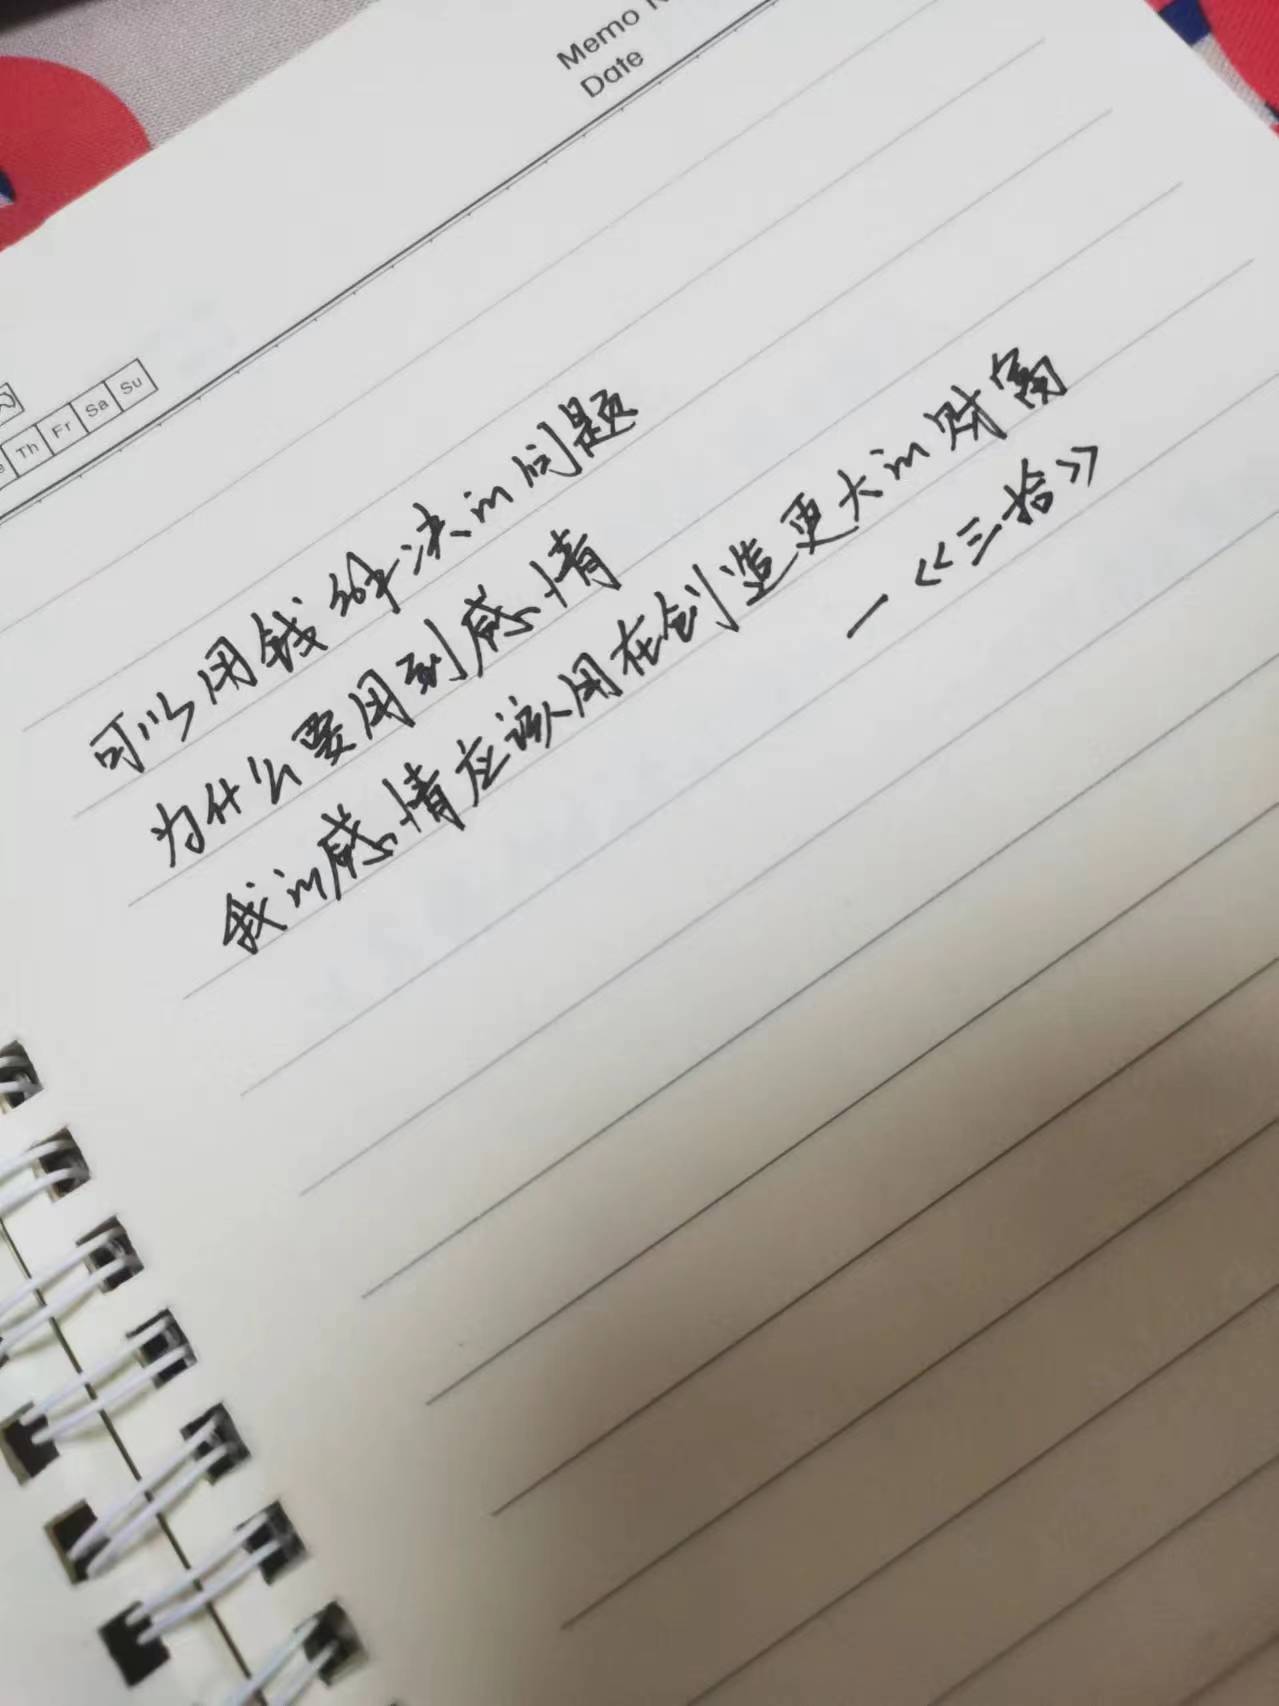 Memo
Date
Th Fr Sa Su
可以用钱解决的问题
为什么要用到感情
我的感情应该用在创造更大的财富
—《三拾》